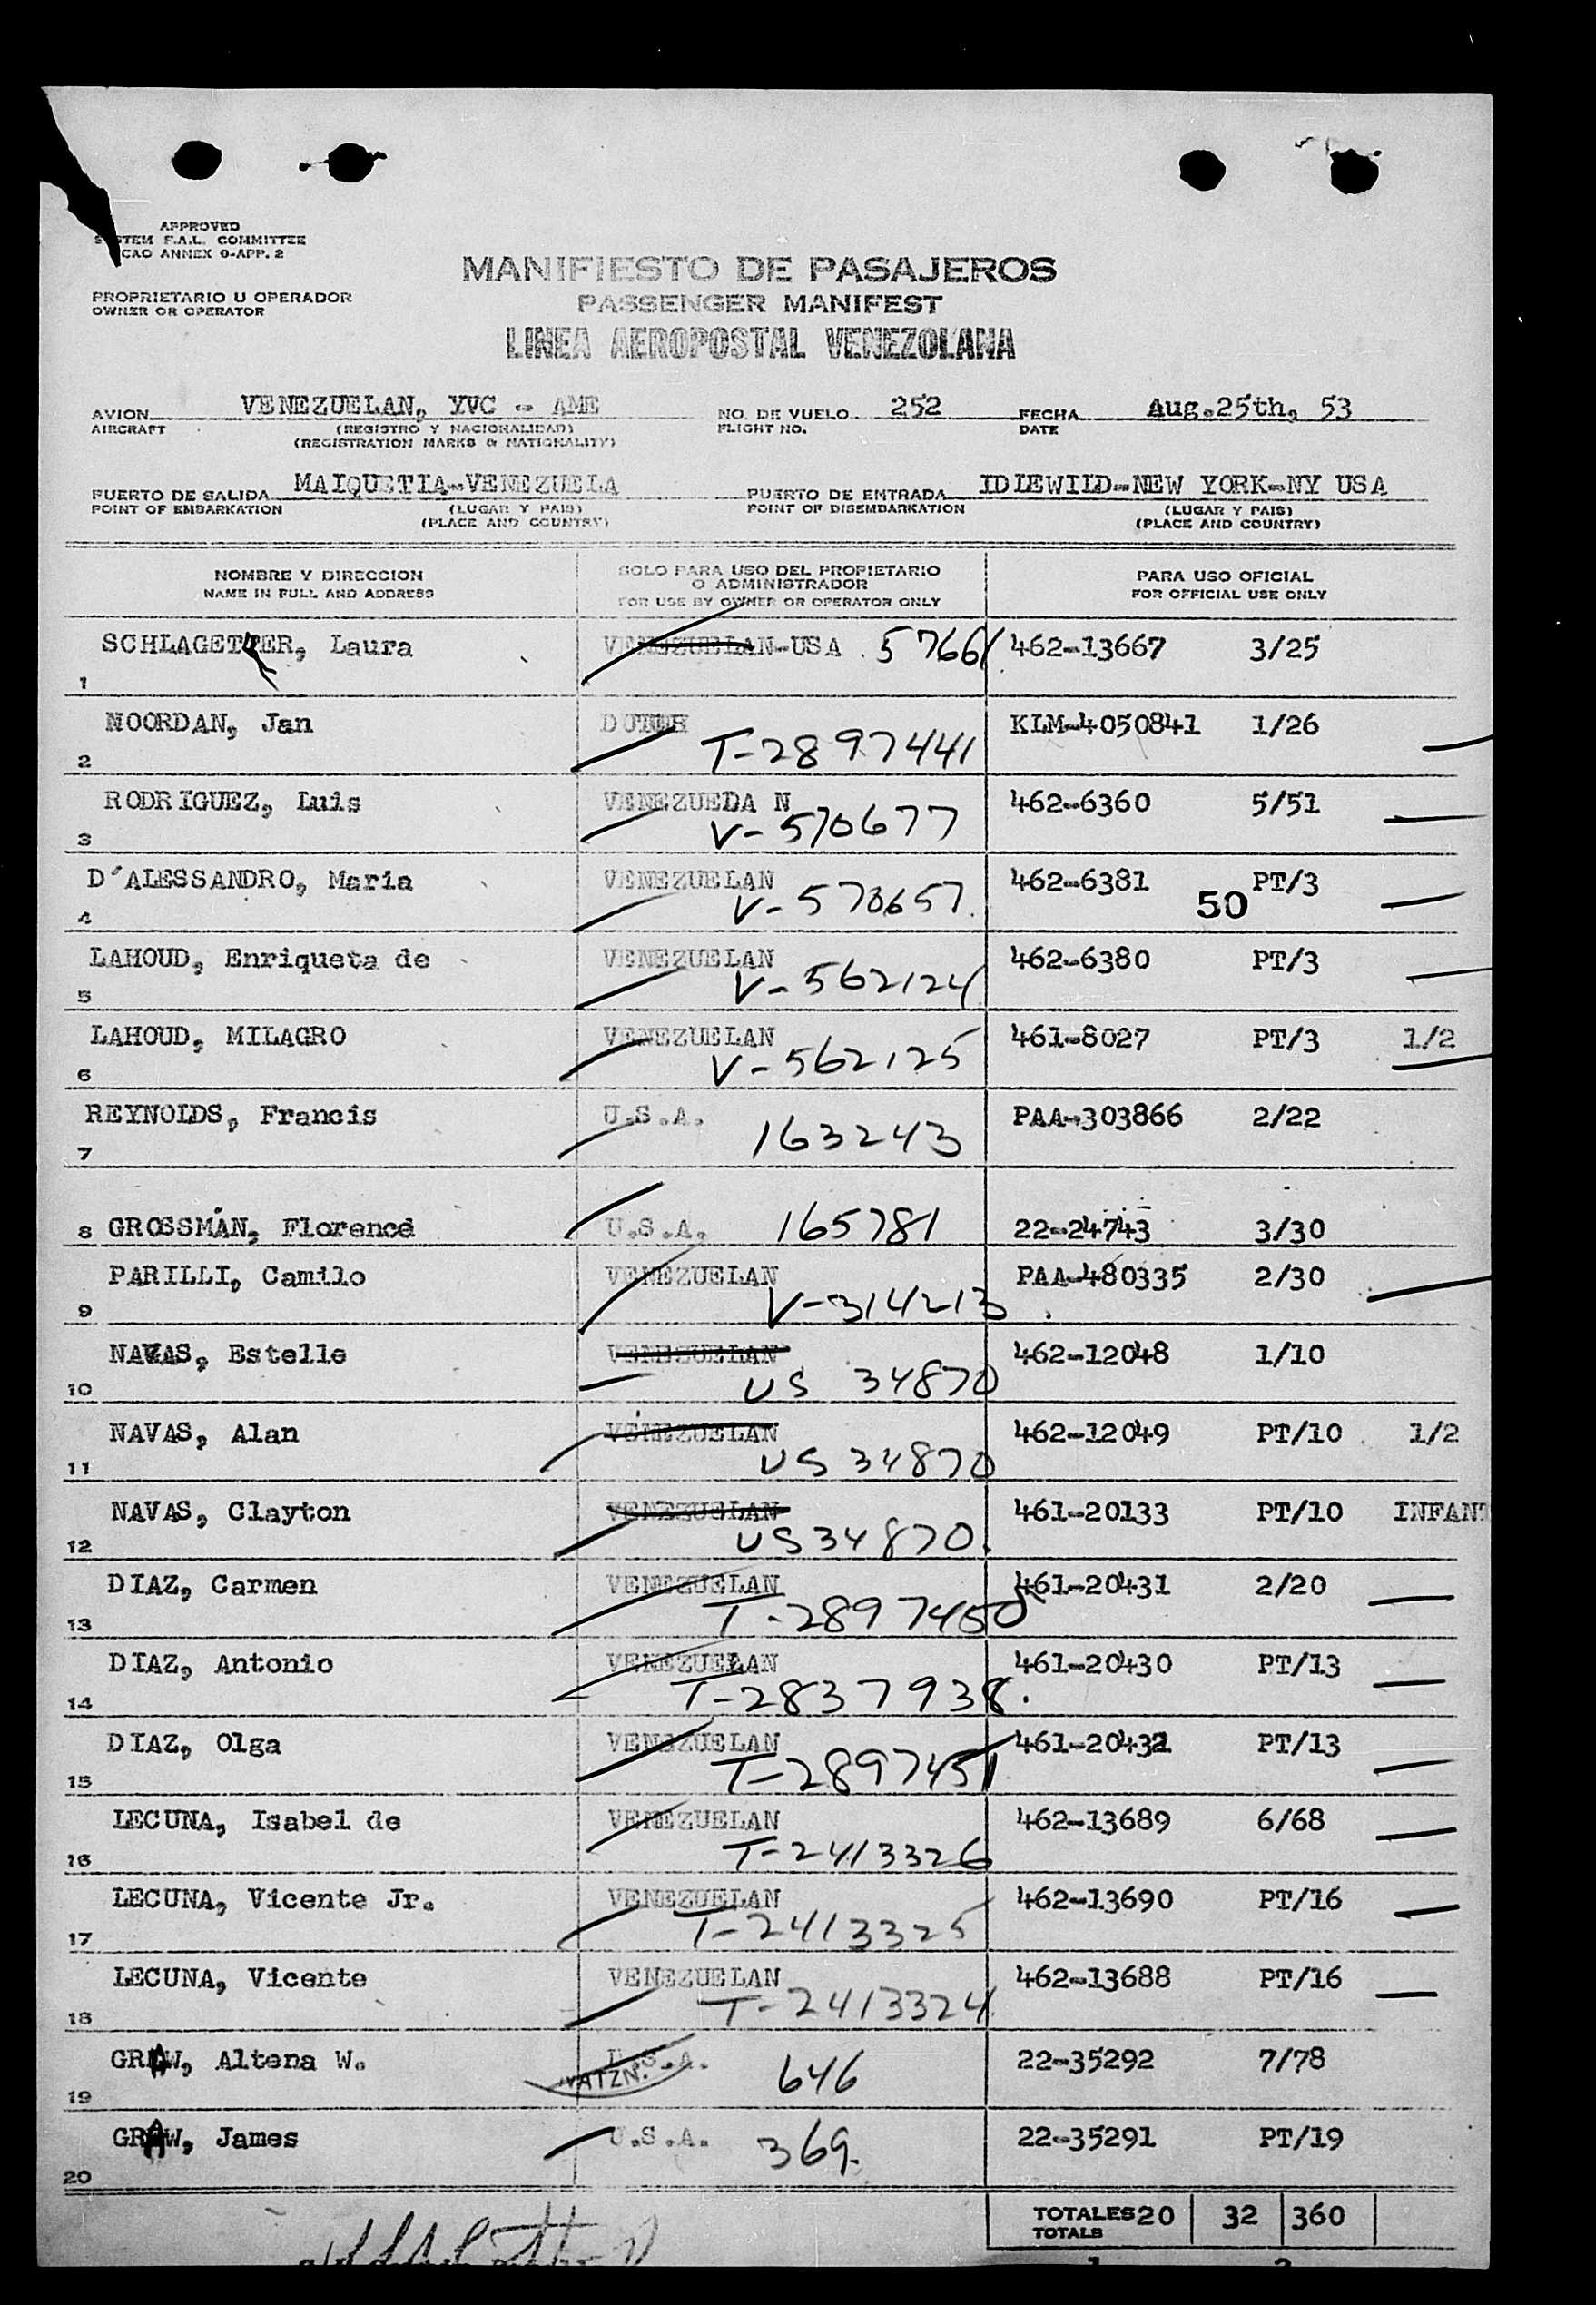 APPROVED
SYSTEM F.A.L. COMMITTEE
ICAO ANNEX 9-APP. 2
MANIFIESTO DE PASAJEROS
PROPRIETARIO U OPERADOR
OWNER OR OPERATOR
PASSENGER MANIFEST
LINEA AEROPOSTAL VENEZOLANA
AVION VENEZUELAN, YVC - AME NO. DE VUELO 252 FECHA Aug.25th, 53
AIRCRAFT (REGISTRO Y NACIONALIDAD) FLIGHT NO. DATE
(REGISTRATION MARKS & NATIONALITY)
PUERTO DE SALIDA MAIQUETIA-VENEZUELA PUERTO DE ENTRADA IDLEWILD-NEW YORK-NY USA
POINT OF EMBARKATION (LUGAR Y PAIS) POINT OF DISEMBARKATION (LUGAR Y PAIS)
(PLACE AND COUNTRY) (PLACE AND COUNTRY)
NOMBRE Y DIRECCION SOLO PARA USO DEL PROPIETARIO PARA USO OFICIAL
O ADMINISTRADOR
NAME IN FULL AND ADDRESS FOR USE BY OWNER OR OPERATOR ONLY FOR OFFICIAL USE ONLY
SCHLAGETTER, Laura VENEZUELAN-USA 57661 462-13667 3/25
1
NOORDAN, Jan DUTCH KLM-4050841 1/26
2 T-2897441
RODRIGUEZ, Luis VENEZUELAN 462-6360 5/51
3 V-570677
D'ALESSANDRO, Maria VENEZUELAN 462-6381 PT/3
4 V-570657 50
LAHOUD, Enriqueta de VENEZUELAN 462-6380 PT/3
5 V-562124
LAHOUD, MILAGRO VENEZUELAN 461-8027 PT/3 1/2
6 V-562125
REYNOLDS, Francis U.S.A. PAA-303866 2/22
7 163243
8 GROSSMAN, Florence U.S.A. 165781 22-24743 3/30
PARILLI, Camilo VENEZUELAN PAA-480335 2/30
9 V-314213
NAVAS, Estelle VENEZUELAN 462-12048 1/10
10 US 34870
NAVAS, Alan VENEZUELAN 462-12049 PT/10 1/2
11 US 34870
NAVAS, Clayton VENEZUELAN 461-20133 PT/10 INFANT
12 US 34870.
DIAZ, Carmen VENEZUELAN 461-20431 2/20
13 T-2897450
DIAZ, Antonio VENEZUELAN 461-20430 PT/13
14 T-2837938.
DIAZ, Olga VENEZUELAN 461-20432 PT/13
15 T-2897451
LECUNA, Isabel de VENEZUELAN 462-13689 6/68
16 T-2413326
LECUNA, Vicente Jr. VENEZUELAN 462-13690 PT/16
17 T-2413325
LECUNA, Vicente VENEZUELAN 462-13688 PT/16
18 T-2413324
GRAW, Altena W. U.S.A. 646 22-35292 7/78
19 NATZN.
GRAW, James U.S.A. 369. 22-35291 PT/19
20
TOTALES 20 32 360
TOTALS